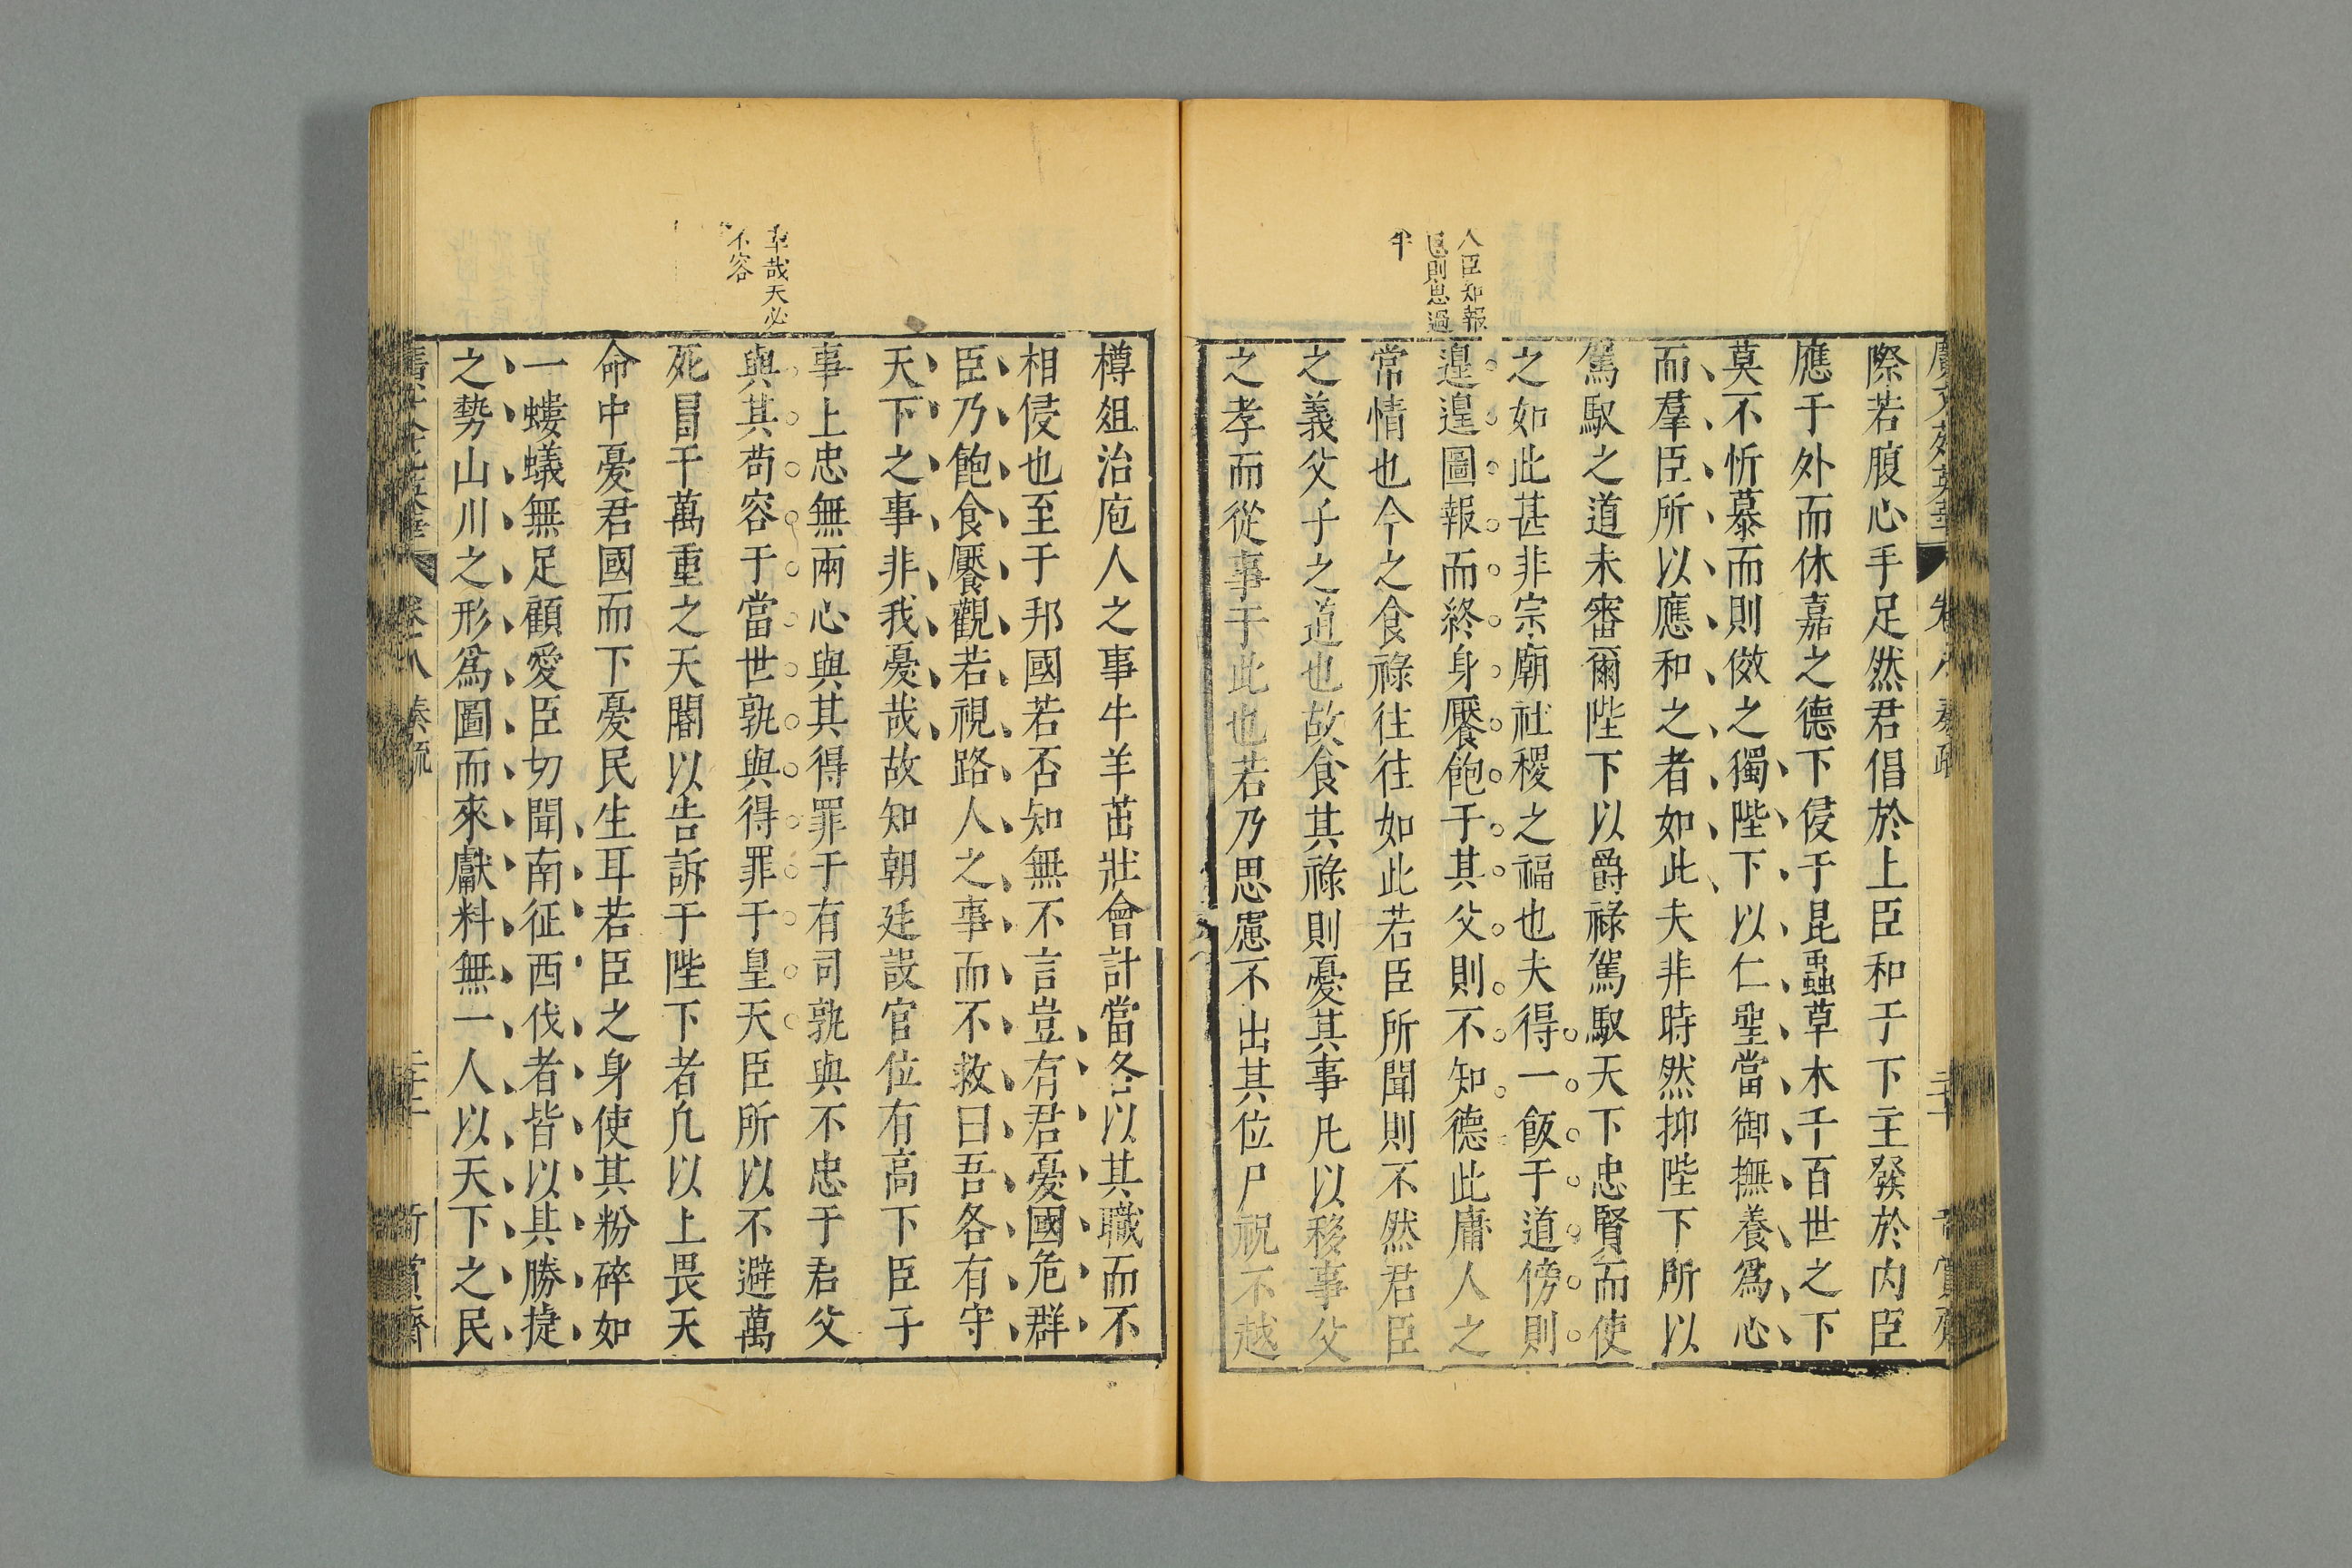 廣文苑英華 卷八 奏疏
際若腹心手足然君倡於上臣和于下主發於内臣
應于外而休嘉之德下侵于昆蟲草木千百世之下
莫不忻慕而則傚之獨陛下以仁聖當御撫養爲心
而羣臣所以應和之者如此夫非時然抑陛下所以
駕馭之道未審爾陛下以爵祿駕馭天下忠賢而使
之如此甚非宗廟社稷之福也夫得一飯于道傍則
遑遑圖報而終身饜飽于其父則不知德此庸人之
常情也今之食祿往往如此若臣所聞則不然君臣
之義父子之道也故食其祿則憂其事凡以移事父
之孝而從事于此也若乃思慮不出其位尸祝不越
人臣知報
恩則思過
半
樽俎治庖人之事牛羊茁壯會計當各以其職而不
相侵也至于邦國若否知無不言豈有君憂國危群
臣乃飽食饜觀若視路人之事而不救曰吾各有守
天下之事非我憂哉故知朝廷設官位有高下臣子
事上忠無兩心與其得罪于有司孰與不忠于君父
與其苟容于當世孰與得罪于皇天臣所以不避萬
死冒干萬重之天閽以告訴于陛下者凡以上畏天
命中憂君國而下憂民生耳若臣之身使其粉碎如
一螻蟻無足顧愛臣切聞南征西伐者皆以其勝捷
之勢山川之形爲圖而來獻料無一人以天下之民
哉天必
不容
奏疏
賞齋